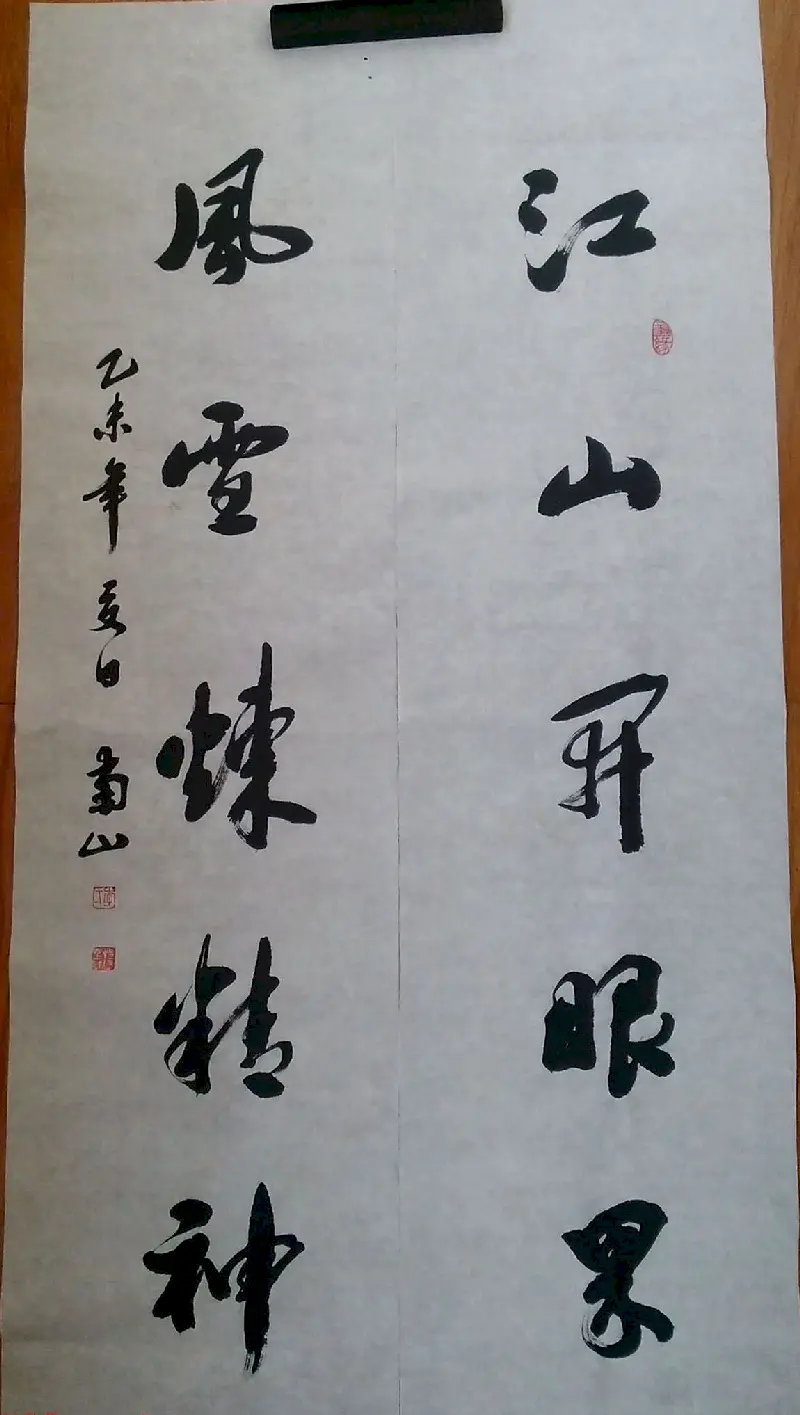 江山开眼界
風雪煉精神
乙未年夏日 菊山